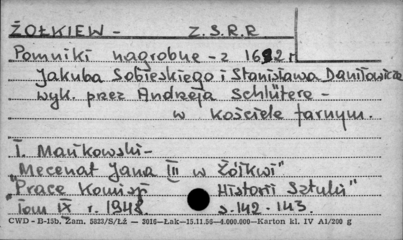 ŻOŁKIEW - Z.S.R.R
Pomniki nagrobne - z 1692 r
Jakuba Sobieskiego i Stanisława Daniłowicza
wyk. przez Andrzeja Schlütera -
w kościele farnym.
T. Mańkowski -
"Mecenat Jana III w Żółkwi"
"Prace Komisji Historii Sztuki"
Tom IX r. 1948 s. 142 - 143.
CWD - B-15b. Zam. 5823/S/Łź - 3016-Łak-15.11.56-4.000.000-Karton kl. IV A1/200 g